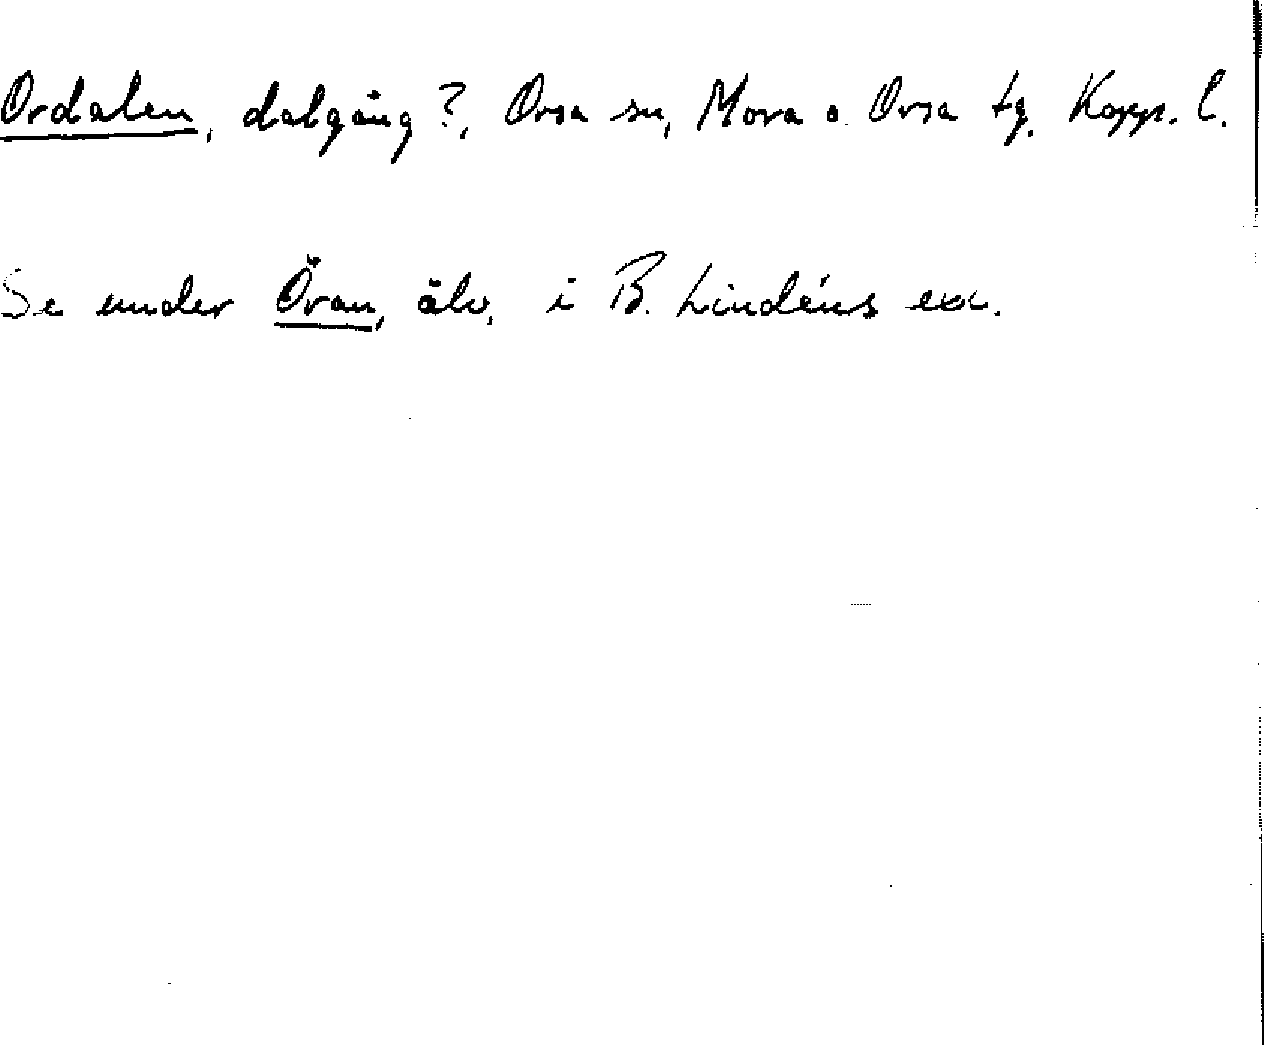 Ordalen, dalgång?, Orsa sn, Mora o. Orsa tg. Kopp. l.
Se under Öran, älv, i B. Lindéns exc.